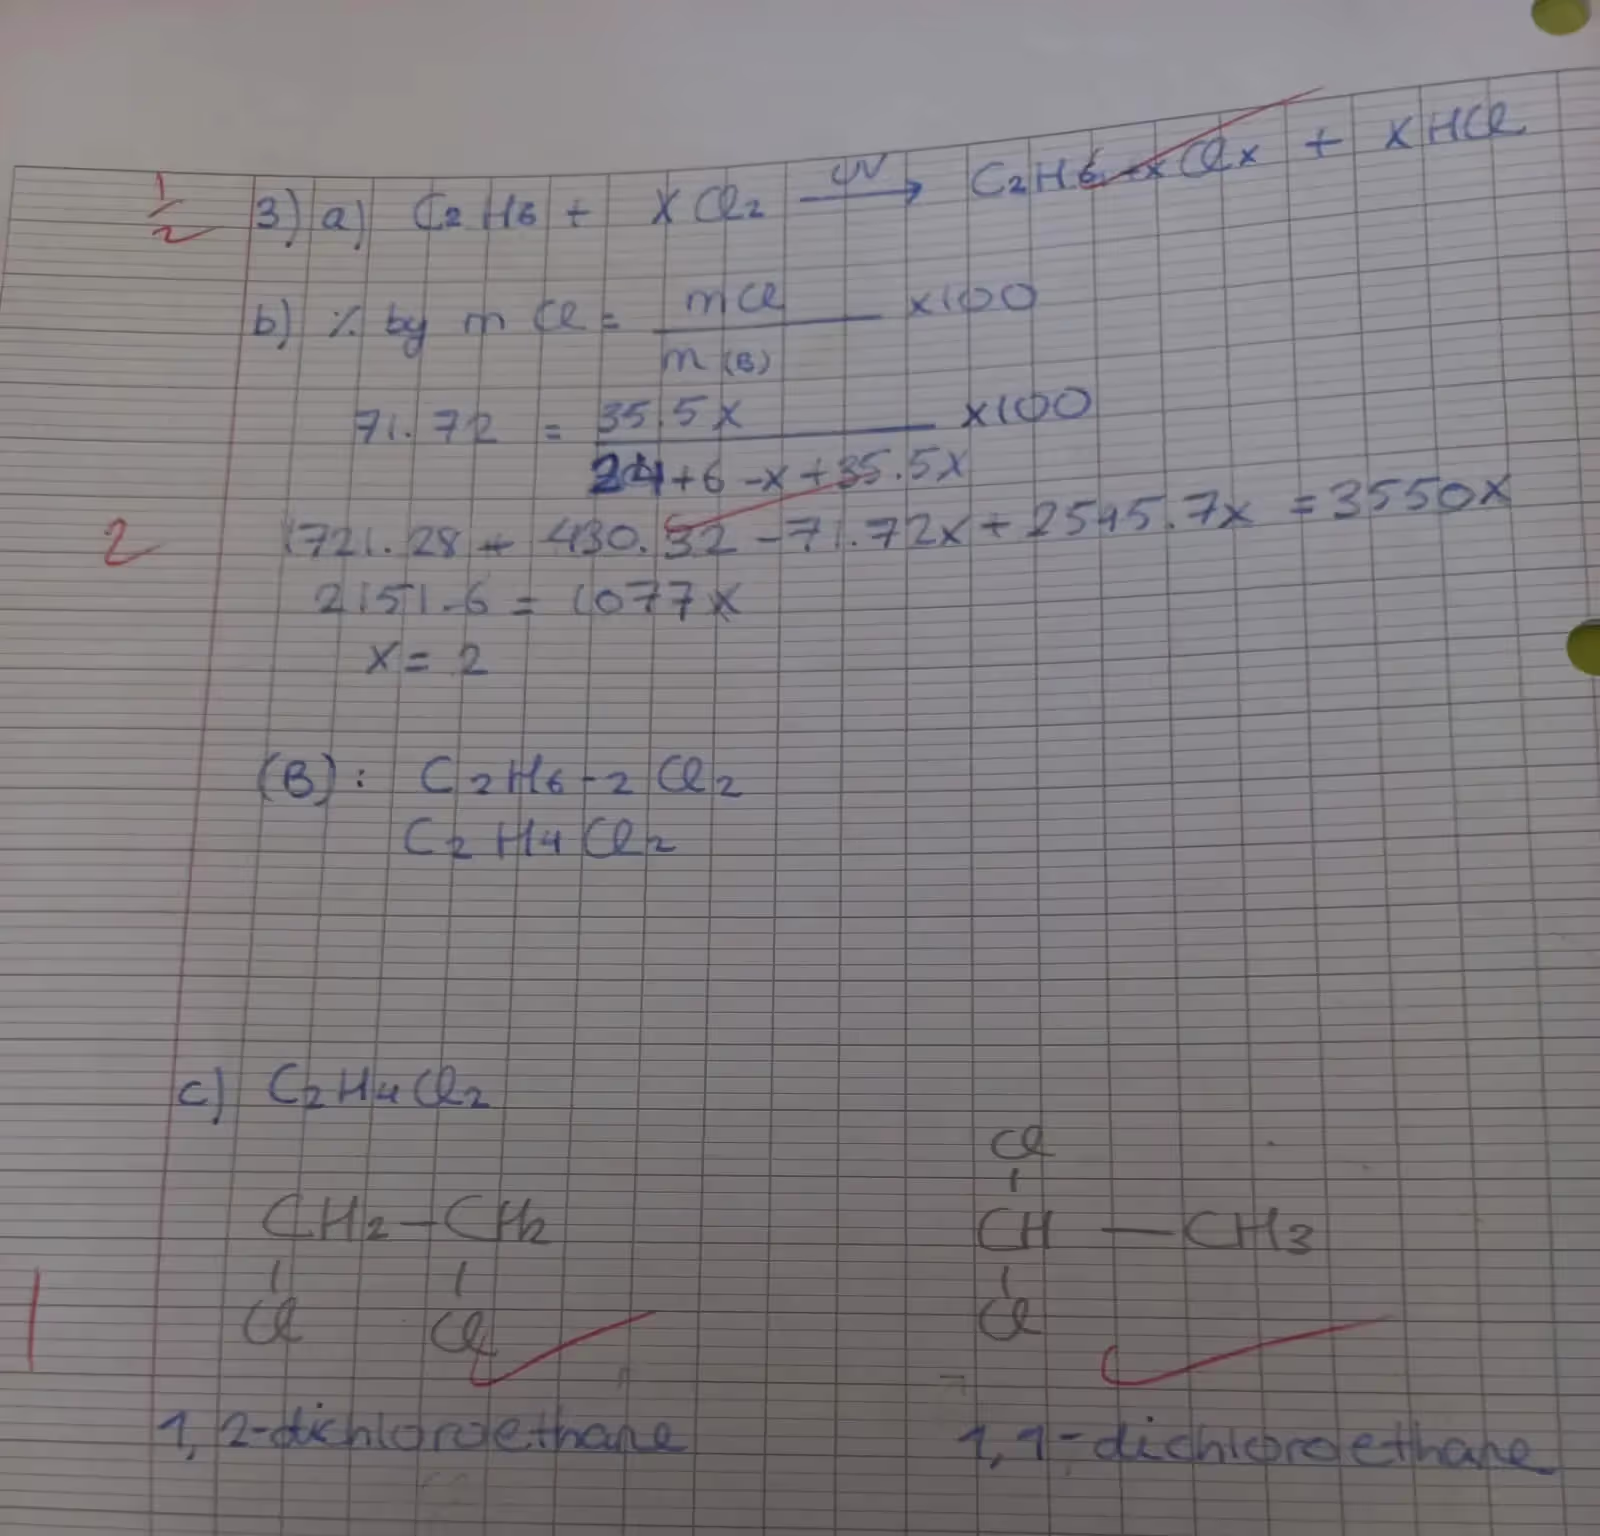 1/2
3) a) C2H6 + x Cl2 —UV→ C2H6-xClx + x HCl
b) % by m Cl = mCl / m(B) x100
71.72 = 35.5x / 24+6-x+35.5x x100
2
1721.28 + 430.32 - 71.72x + 2545.7x = 3550x
2151.6 = 1077x
x = 2
(B): C2H6-2Cl2
C2H4Cl2
c) C2H4Cl2
Cl
CH2 - CH2 CH — CH3
Cl Cl Cl
1
1,2-dichloroethane 1,1-dichloroethane